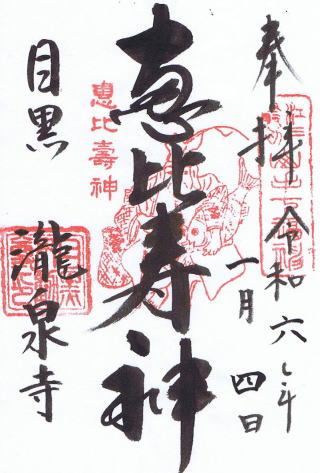 奉拝 令和六年
一月四日
恵比寿神
恵比壽神
目黒
瀧泉寺